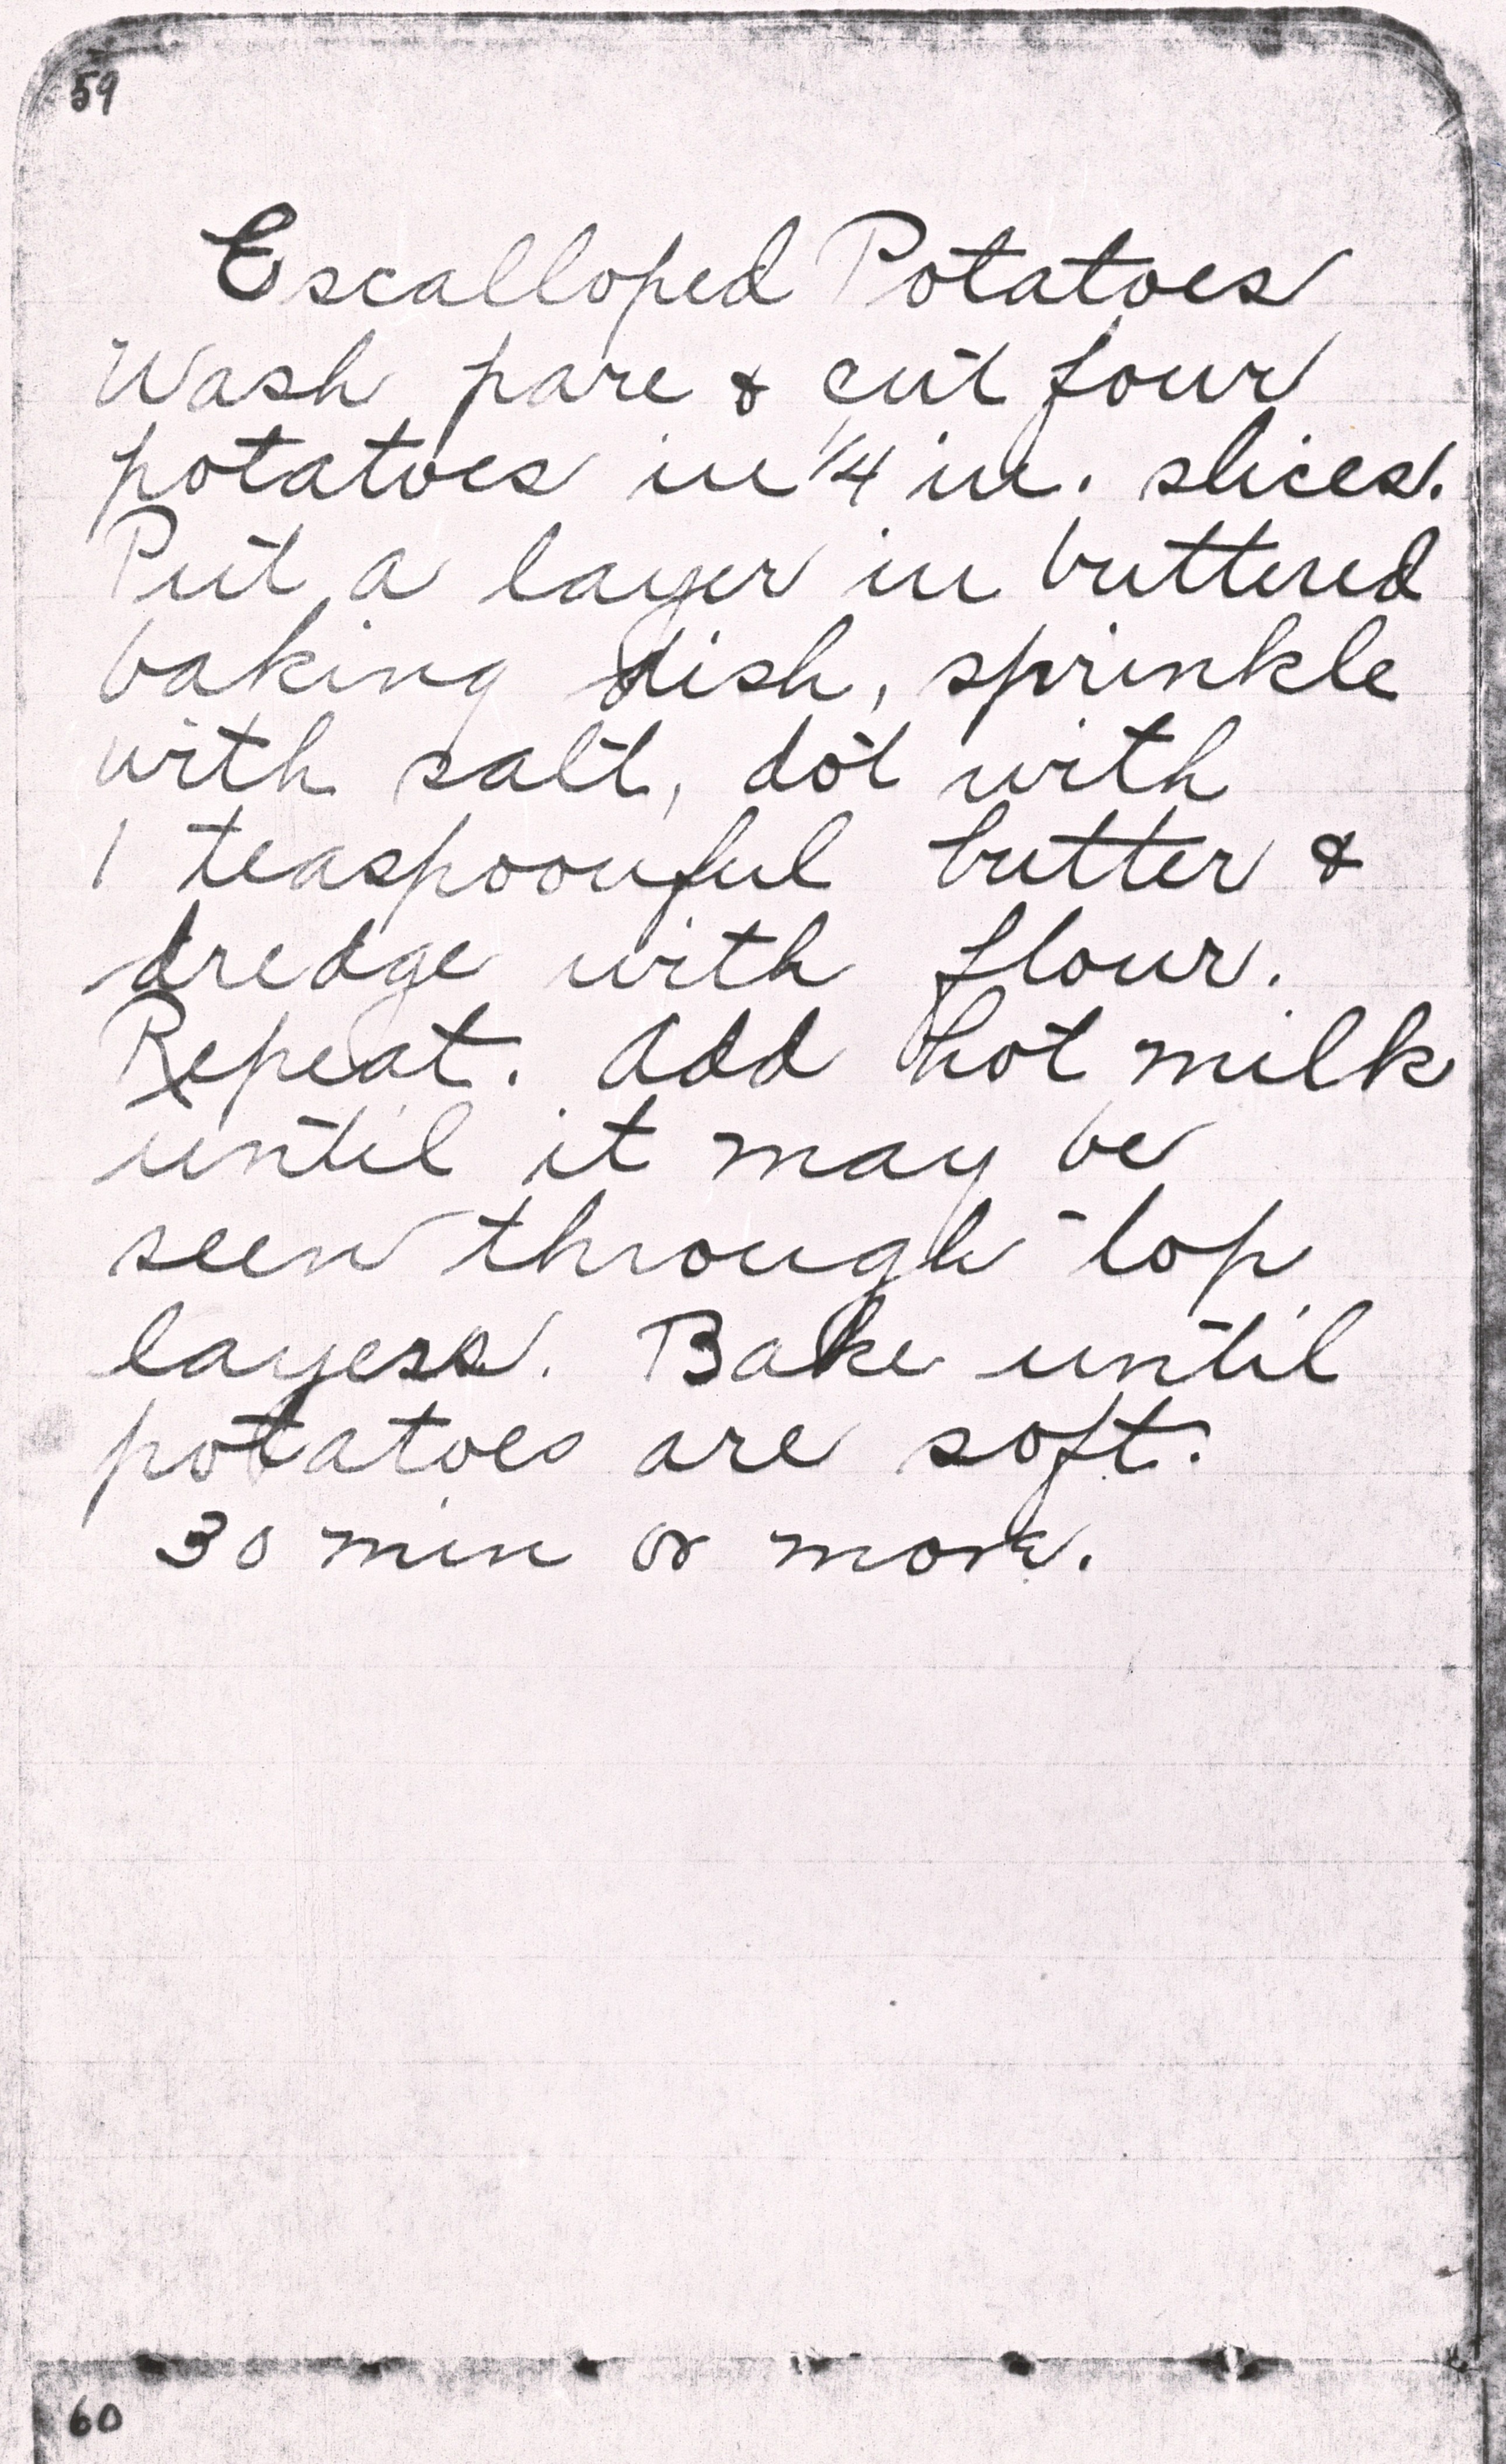 59
Escalloped Potatoes
Wash pare & cut four
potatoes in 1/4 in. slices.
Put a layer in buttered
baking dish, sprinkle
with salt, dot with
1 teaspoonful butter &
dredge with flour.
Repeat. Add hot milk
until it may be
seen through top
layers. Bake until
potatoes are soft.
30 min or more.
60